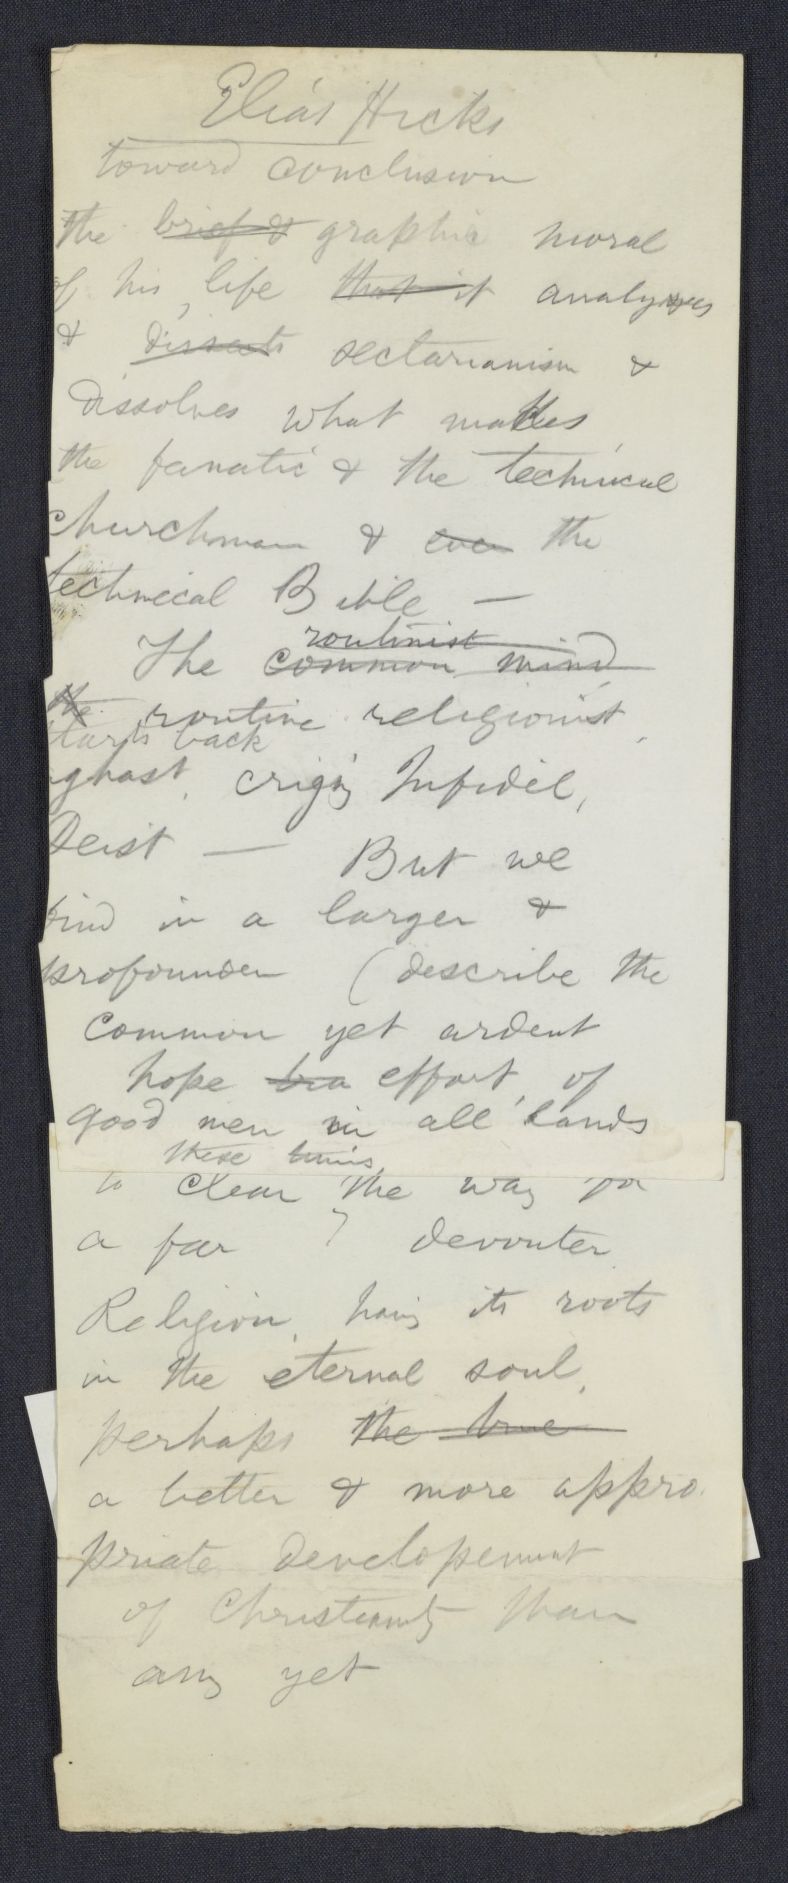 Elias Hicks
toward conclusion
The brief & graphic moral
of his life that it analyzes
& dissects sectarianism &
dissolves what makes
the fanatic & the technical
churchman & even the
technical Bible —
routinist
The common mind
the routine religionist,
starts back
aghast, crying Infidel,
Deist — But we
find in a larger &
profounder (describe the
common yet ardent
hope & effort, of
good men in all lands
these
to clear the way for
a far devouter
Religion, having its roots
in the eternal soul,
perhaps the true
a better & more appro
priate developement
of Christianity than
any yet